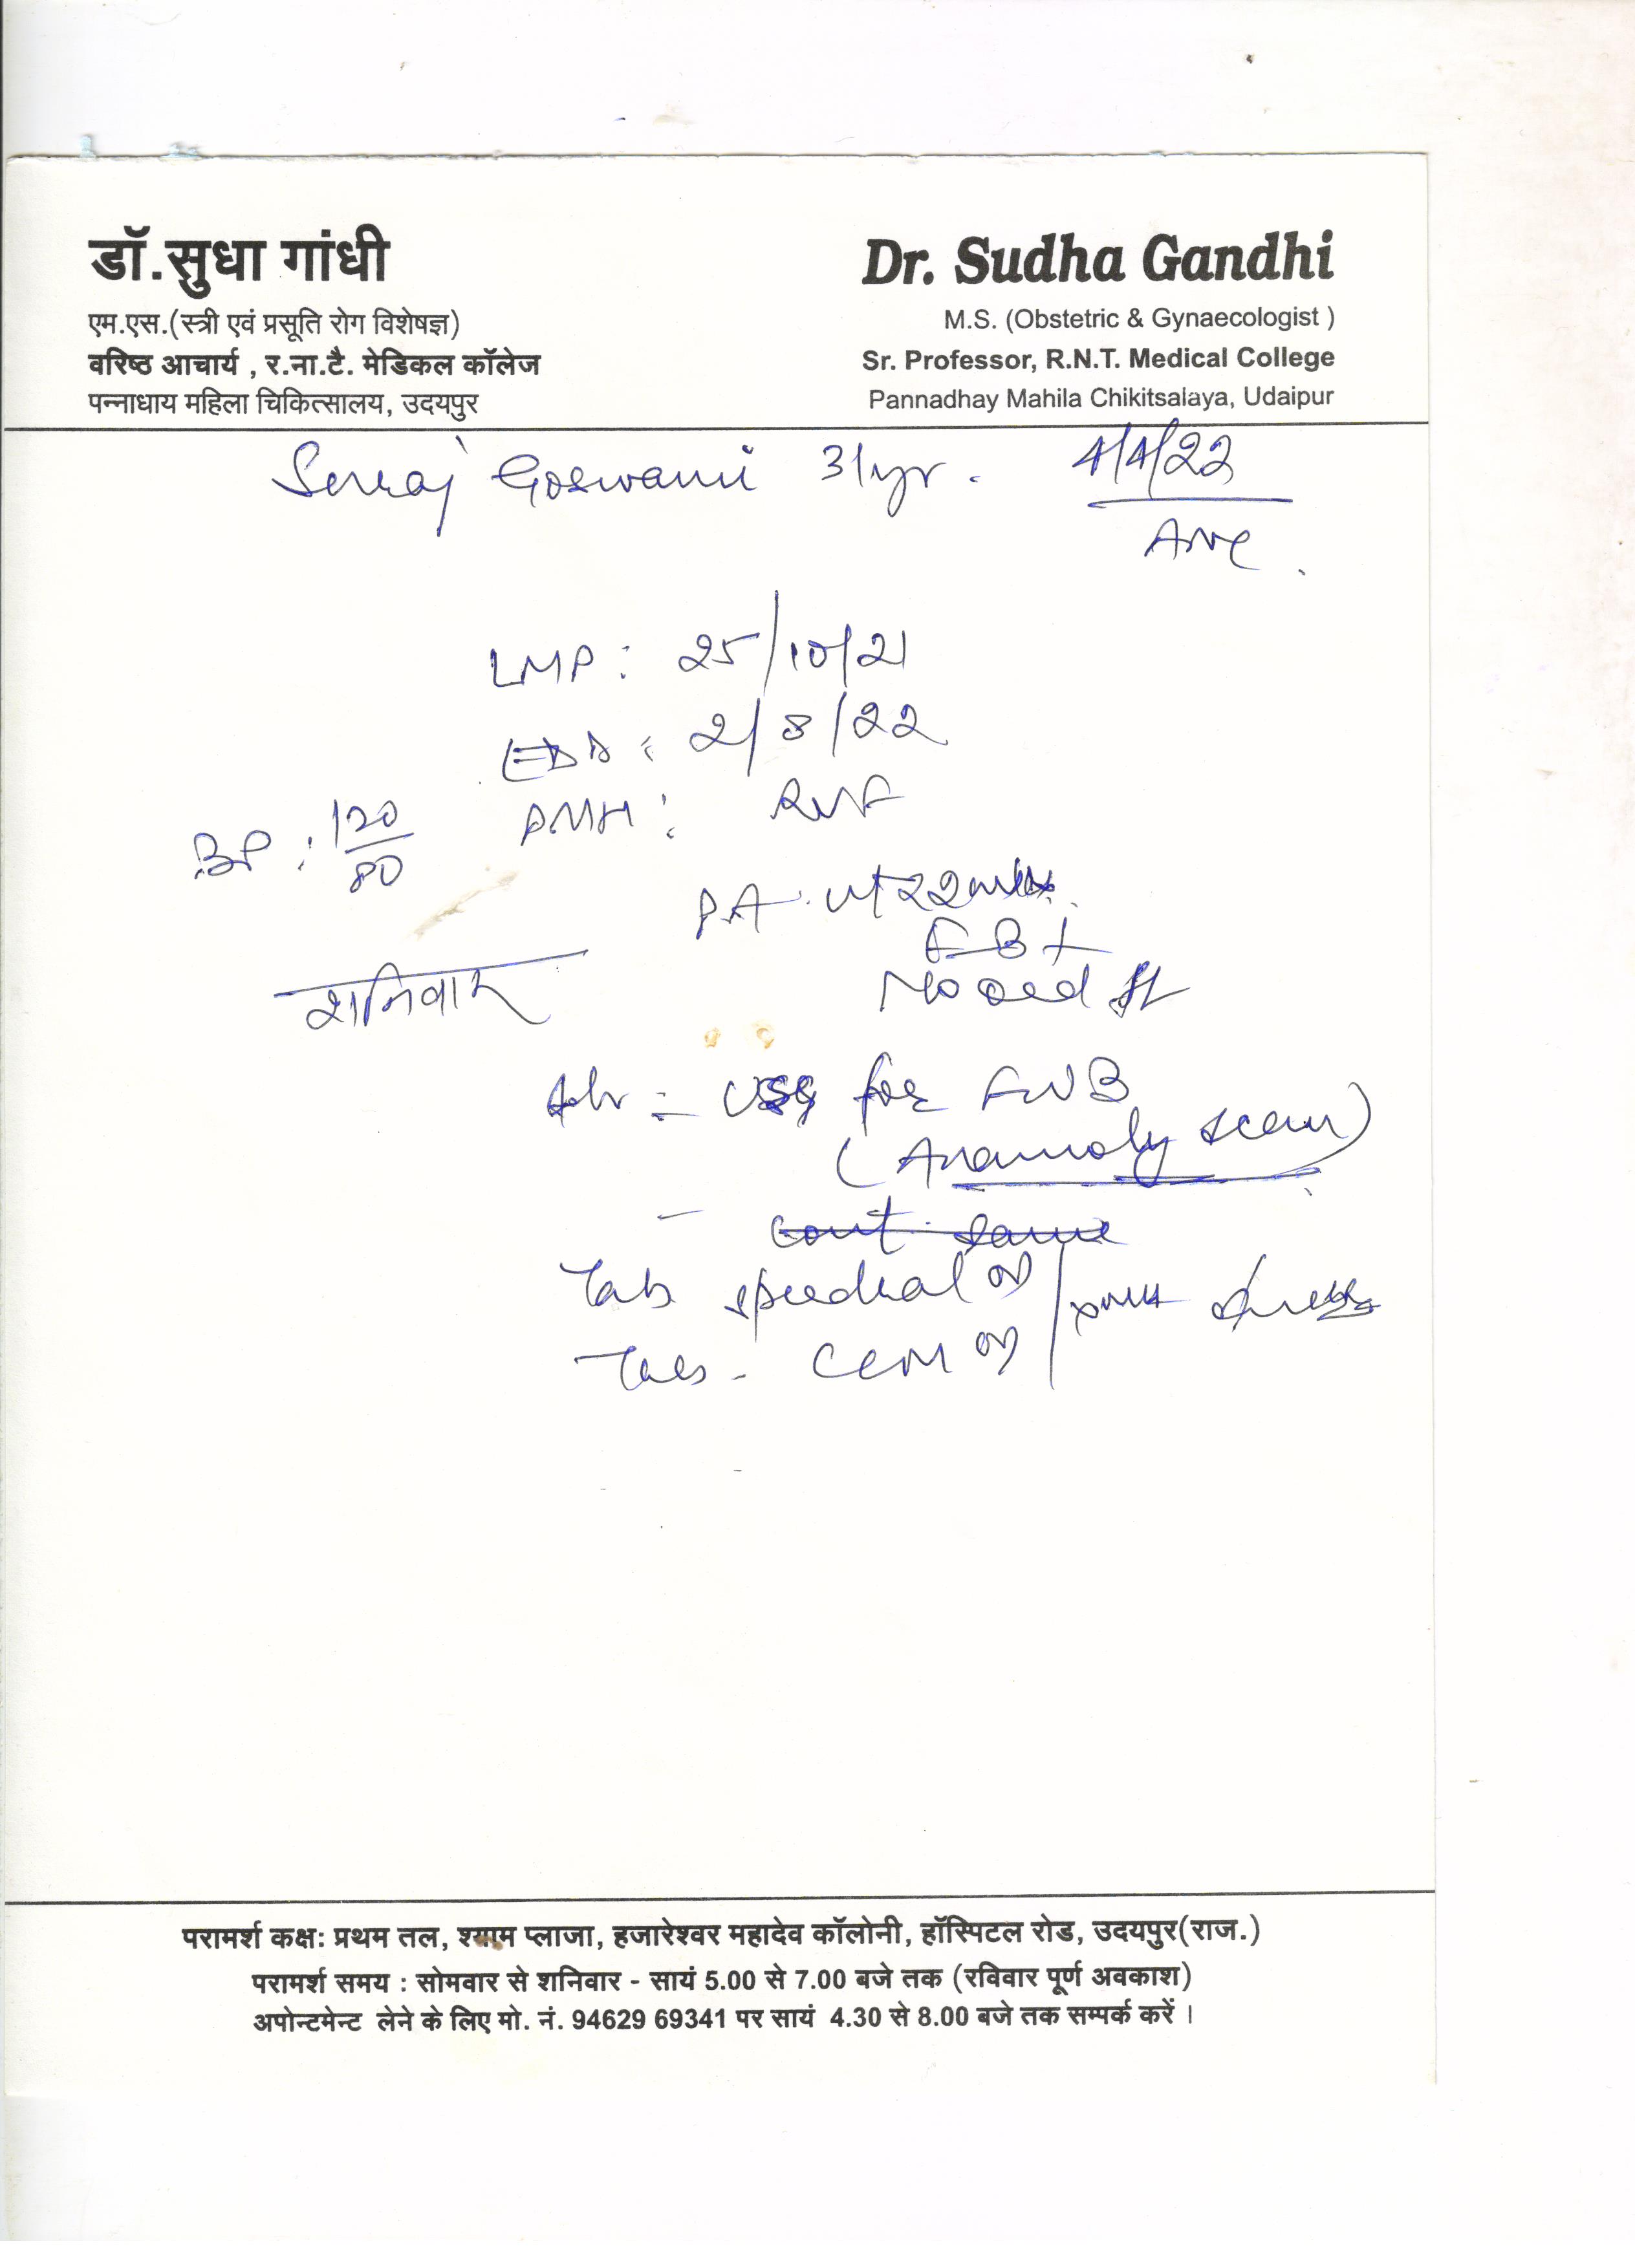 डॉ.सुधा गांधी
एम.एस.(स्त्री एवं प्रसूति रोग विशेषज्ञ)
वरिष्ठ आचार्य , र.ना.टै. मेडिकल कॉलेज
पन्नाधाय महिला चिकित्सालय, उदयपुर
Dr. Sudha Gandhi
M.S. (Obstetric & Gynaecologist )
Sr. Professor, R.N.T. Medical College
Pannadhay Mahila Chikitsalaya, Udaipur
Goswami 31yr. 4/4/22
ANC
LMP: 25/10/21
EDD: 2/8/22
BP: 120/80 PMH:
PA: ut 22 wks
FB+
No
शनिवार
Adv - USG for FWB
(Anamoly scan)
- cont. same
Tab
Tab. CCM
परामर्श कक्ष: प्रथम तल, श्याम प्लाजा, हजारेश्वर महादेव कॉलोनी, हॉस्पिटल रोड, उदयपुर(राज.)
परामर्श समय : सोमवार से शनिवार - सायं 5.00 से 7.00 बजे तक (रविवार पूर्ण अवकाश)
अपोन्टमेन्ट लेने के लिए मो. नं. 94629 69341 पर सायं 4.30 से 8.00 बजे तक सम्पर्क करें ।